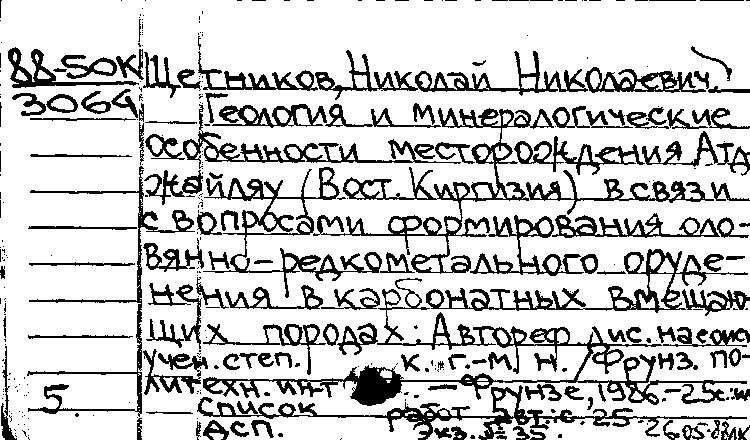 88-50К
3064
Щетников, Николай Николаевич.
Геология и минералогические
особенности месторождения Атд
жайляу (Вост. Киргизия) в связи
с вопросами формирования оло-
вянно-редкометального оруде-
нения в карбонатных вмещаю
щих породах: Автореф. дис. на соиск
учен. степ. к. г.-м. н. / Фрунз. по-
литехн. ин-т. — Фрунзе, 1986. - 25с.
5. список работ авт.: с. 25
ДСП. Экз. № 35. 26.05.88